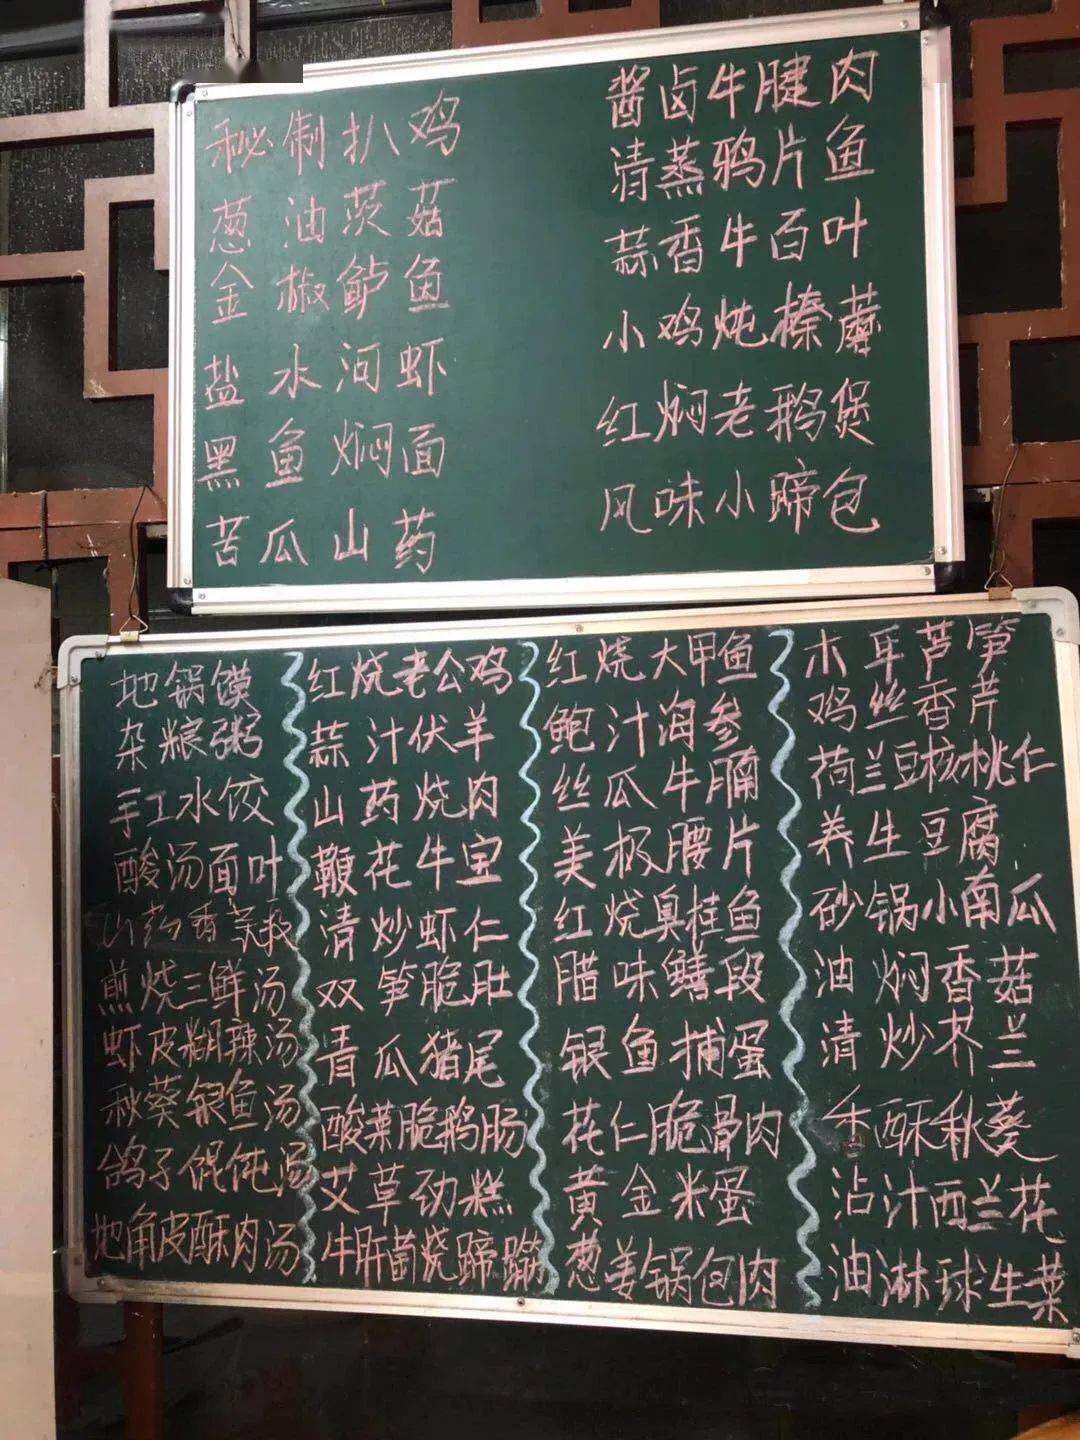 秘制扒鸡
葱油茨菇
金椒鲈鱼
盐水河虾
黑鱼焖面
苦瓜山药
酱卤牛腱肉
清蒸鸦片鱼
蒜香牛百叶
小鸡炖榛蘑
红焖老鹅煲
风味小蹄包
地锅馍
杂粮粥
手工水饺
酸汤面叶
山药香
煎烧三鲜汤
虾皮糊辣汤
秋葵银鱼汤
鸽子馄饨汤
地角皮酥肉汤
红烧老公鸡
蒜汁伏羊
山药烧肉
鞭花牛宝
清炒虾仁
双笋脆肚
青瓜猪尾
酸菜脆鹅肠
艾草劲糕
牛肝菌烧蹄
红烧大甲鱼
鲍汁海参
丝瓜牛腩
美极腰片
红烧臭桂鱼
腊味鳝段
银鱼捕蛋
花仁脆骨肉
黄金米蛋
葱姜锅包肉
木耳芦笋
鸡丝香芹
荷兰豆核桃仁
养生豆腐
砂锅小南瓜
油焖香菇
清炒芥兰
酥秋葵
沾汁西兰花
油淋球生菜